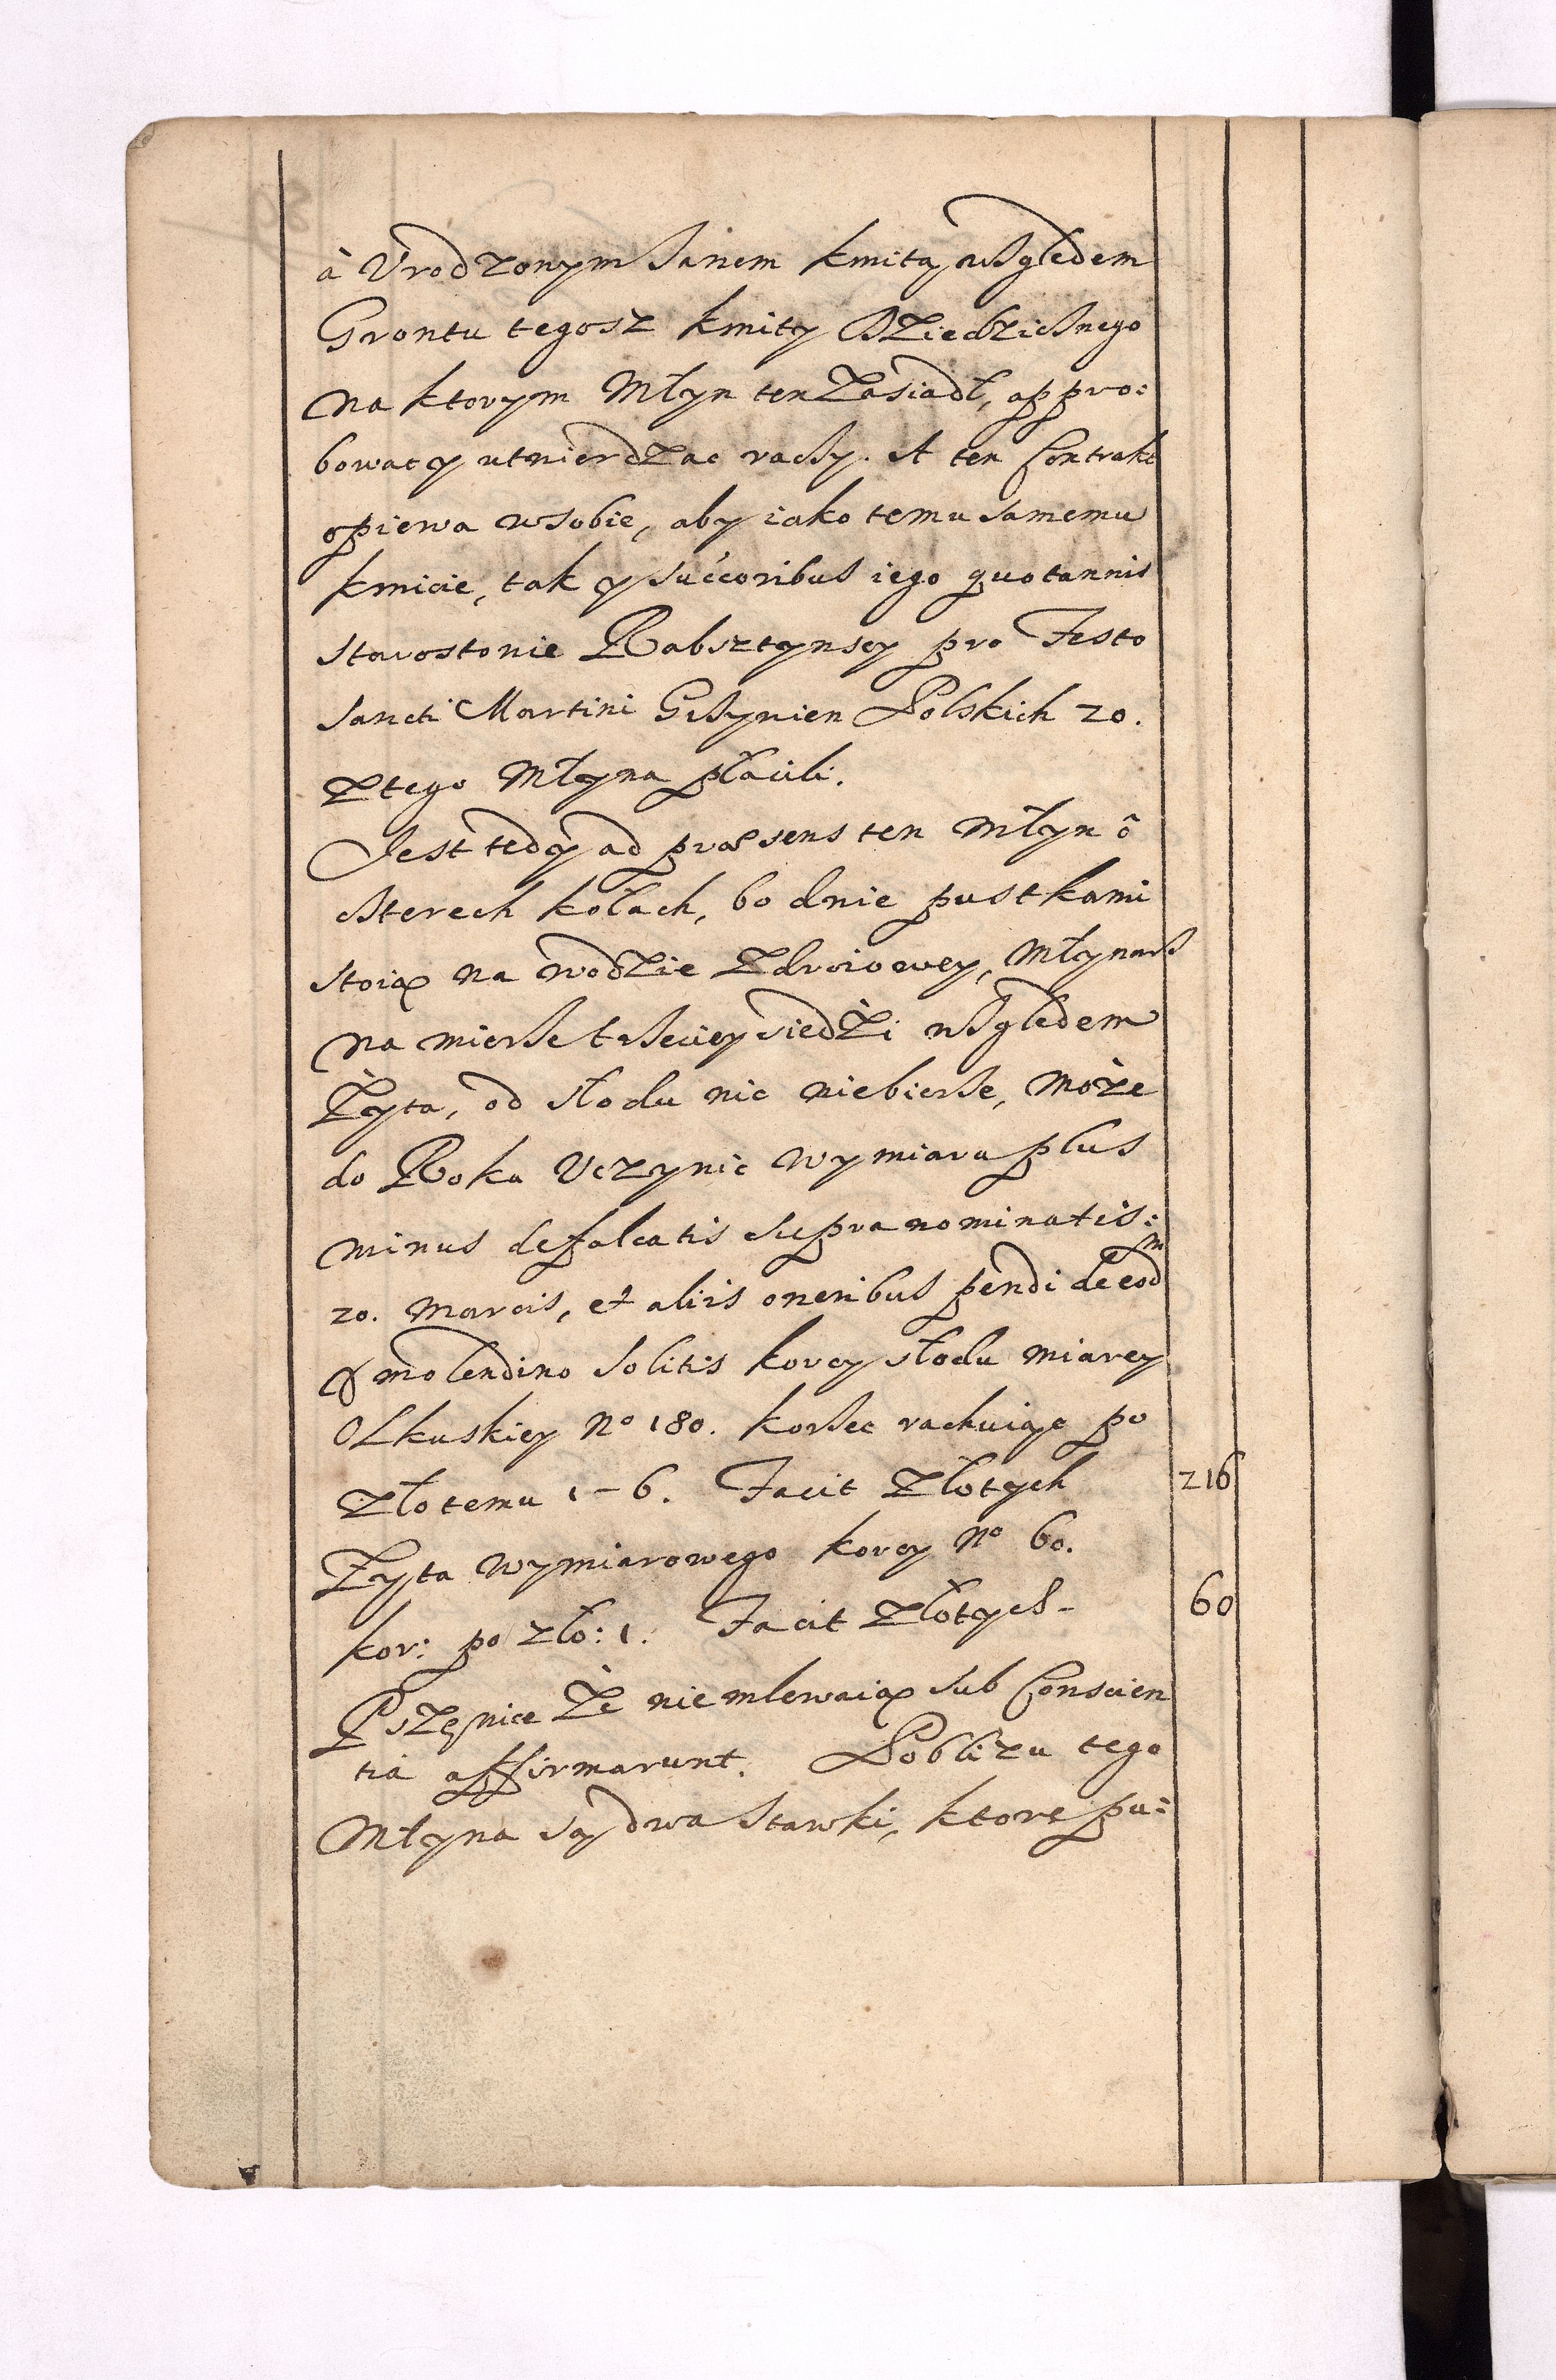 à Vrodzonym Janem Kmitą względem
Grontu tegosz Kmity Dziedzicznego
na ktorym Młyn ten zasiadł, appro:
bować y utwierdzac raczy. A ten Contrakt
opiewa wsobie, aby iako temu samemu
Kmicie, tak y succoribus iego quotannis
starostowie Rabsztynscy pro Festo
Sancti Martini Grzywien Polskich 20.
Ztego Młyna płacili.
Jest tedy ad præsens ten Młyn ô
czterech kołach, bo dnie pustkami
stoią na wodzie Zdroiowey, Młynarz
na mierze trzeciey siedżi względem
Żyta, od słodu nic niebierze, może
do Roku Vczynic wymiaru plus
minus defalcatis supra nominatis:
20. marcis, et aliis oneribus pendi de eodm
molendino solitis korcy słodu miarey
Olkuskiey No 180. korzec rachuiąc po
złotemu 1-6. Facit Złotych 216
Żyta wymiarowego korcy No 60.
kor: po zło: 1. Facit Złotych - 60
Pszęnice że niemlewaią sub Conscien
tiá affirmarunt. Poblizu tego
Młyna są dwa stawki, ktore pu: